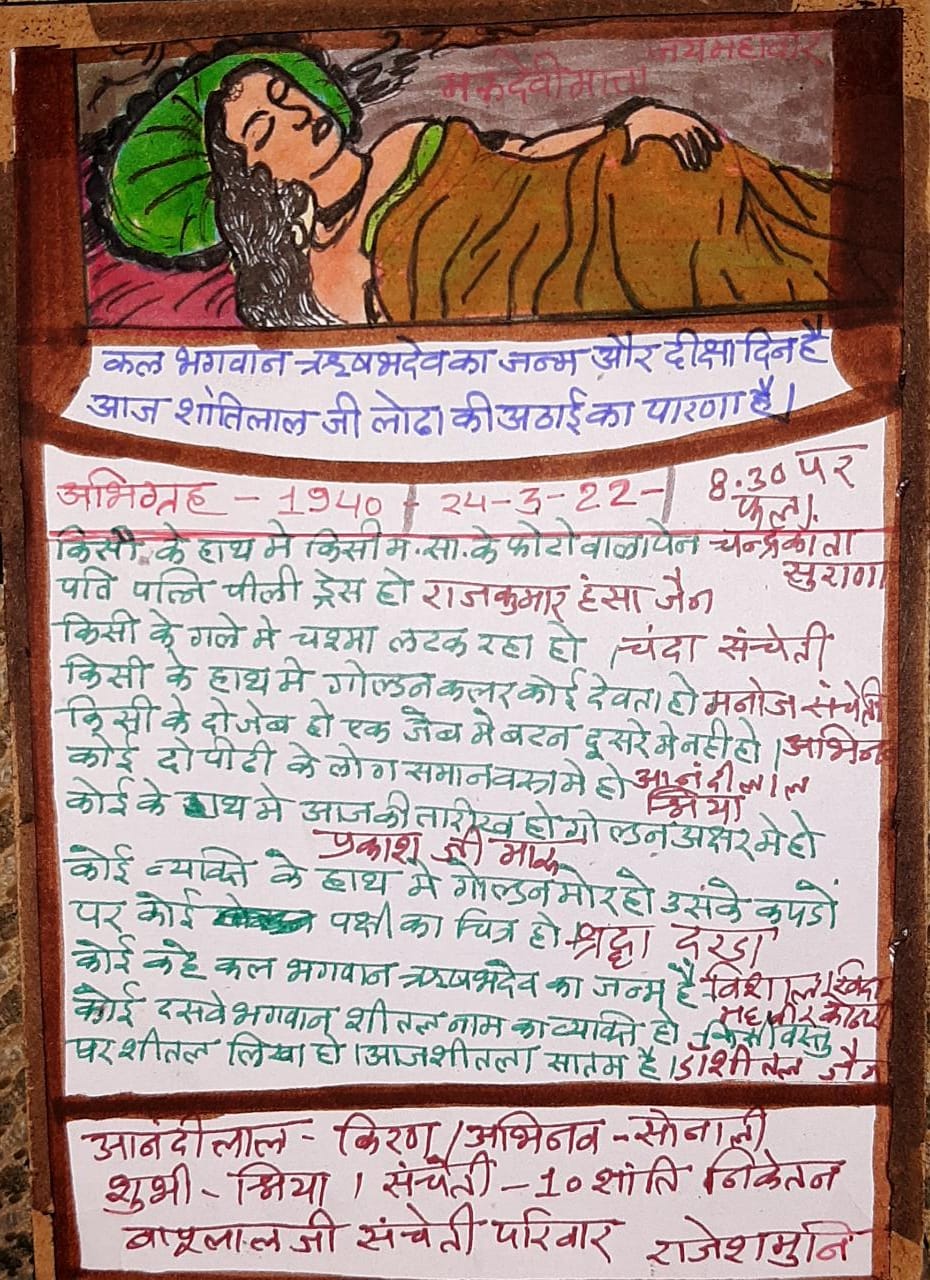 जय महावीर
मरूदेवी माता
कल भगवान ऋषभदेव का जन्म और दीक्षा दिन है
आज शांतिलाल जी लोढा की अठाई का पारणा है।
अभिग्रह - 1940 | 24-3-22- | 8.30 पर फला.
किसी के हाथ मे किसी म.सा. के फोटो वाला पेन चन्द्रकांता सुराणा
पति पत्नि पीली ड्रेस हो राजकुमार हंसा जैन
किसी के गले मे चश्मा लटक रहा हो । चंदा संचेती
किसी के हाथ मे गोल्डन कलर कोई देवता हो मनोज संचेती
किसी के दो जेब हो एक जेब मे बटन दूसरे मे नही हो । अभिनव
कोई दो पीढी के लोग समान वस्त्र मे हो आनंदीलाल श्रिया
कोई के हाथ मे आज की तारीख हो गोल्डन अक्षर मे हो
प्रकाश जी
कोई व्यक्ति के हाथ मे गोल्डन मोर हो उसके कपडो
पर कोई पक्षी का चित्र हो श्रद्धा दरडा
कोई कहे कल भगवान ऋषभदेव का जन्म है विशाल
महावीर
कोई दसवे भगवान शीतल नाम का व्यक्ति हो किसी वस्तु
पर शीतल लिखा हो । आज शीतला सातम है । डा शीतल जैन
आनंदीलाल - किरण / अभिनव - सोनाली
शुभी - श्रिया । संचेती - 10 शांति निकेतन
बाबूलाल जी संचेती परिवार राजेशमुनि